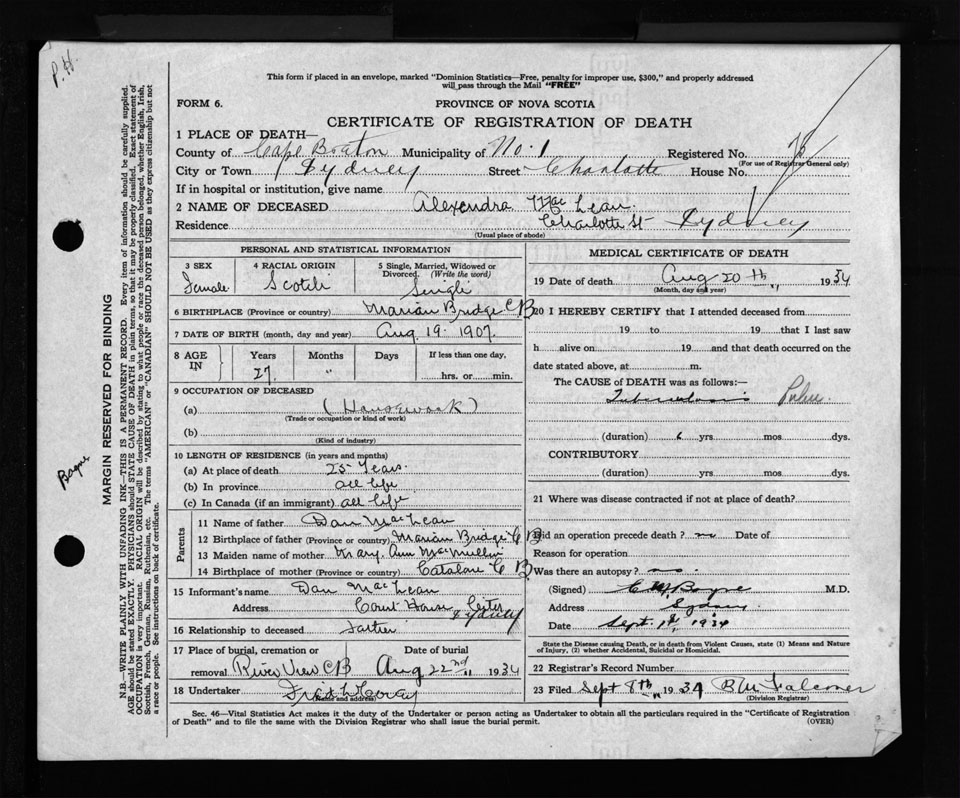 P.H.
This form if placed in an envelope, marked "Dominion Statistics—Free, penalty for improper use, $300," and properly addressed
will pass through the Mail "FREE"
FORM 6.
PROVINCE OF NOVA SCOTIA
CERTIFICATE OF REGISTRATION OF DEATH
1 PLACE OF DEATH—
County of Cape Breton Municipality of No. 1 Registered No.
(For use of Registrar General only)
City or Town Sydney Street Charlotte House No.
If in hospital or institution, give name
2 NAME OF DECEASED Alexendra Mac Lean.
Residence Charlotte St Sydney
(Usual place of abode)
PERSONAL AND STATISTICAL INFORMATION
3 SEX Female
4 RACIAL ORIGIN Scotch
5 Single, Married, Widowed or Divorced. (Write the word) Single
6 BIRTHPLACE (Province or country) Marian Bridge CB
7 DATE OF BIRTH (month, day and year) Aug 19. 1907.
8 AGE IN Years 27 Months " Days If less than one day, hrs. or min.
9 OCCUPATION OF DECEASED
(a) (Housework)
(Trade or occupation or kind of work)
(b)
(Kind of industry)
10 LENGTH OF RESIDENCE (in years and months)
(a) At place of death 25 Years.
(b) In province all life
(c) In Canada (if an immigrant) all life
Parents
11 Name of father Dan MacLean
12 Birthplace of father (Province or country) Marian Bridge C B
13 Maiden name of mother Mary. Ann McMullin
14 Birthplace of mother (Province or country) Catalone C B
15 Informant's name Dan MacLean
Address Court House Sydney
16 Relationship to deceased father
17 Place of burial, cremation or removal River View CB
Date of burial Aug 22nd 1934
18 Undertaker
(Name and address)
MEDICAL CERTIFICATE OF DEATH
19 Date of death Aug 20th 1934
(Month, day and year)
20 I HEREBY CERTIFY that I attended deceased from
19 to 19 that I last saw
h alive on 19 and that death occurred on the
date stated above, at m.
The CAUSE OF DEATH was as follows:—
Tuberculosis Pulm.
(duration) 6 yrs mos. dys.
CONTRIBUTORY
(duration) yrs mos. dys.
21 Where was disease contracted if not at place of death?
Did an operation precede death? no Date of
Reason for operation
Was there an autopsy? no.
(Signed) M.D.
Address Sydney
Date Sept. 1934
State the Disease causing Death, or in death from Violent Causes, state (1) Means and Nature
of Injury, (2) whether Accidental, Suicidal or Homicidal.
22 Registrar's Record Number
23 Filed Sept 8th 1934
(Division Registrar)
Sec. 46—Vital Statistics Act makes it the duty of the Undertaker or person acting as Undertaker to obtain all the particulars required in the "Certificate of Registration
of Death" and to file the same with the Division Registrar who shall issue the burial permit.
(OVER)
MARGIN RESERVED FOR BINDING
N.B.—WRITE PLAINLY WITH UNFADING INK—THIS IS A PERMANENT RECORD. Every item of information should be carefully supplied.
AGE should be stated EXACTLY. PHYSICIANS should STATE CAUSE OF DEATH in plain terms, so that it may be properly classified. Exact statement of
OCCUPATION is very important. RACIAL ORIGIN will be described by stating to what people or race the deceased person belonged, whether English, Irish,
Scottish, French, German, Russian, Ruthenian, etc. The terms "AMERICAN" or "CANADIAN" SHOULD NOT BE USED as they express citizenship but not
a race or people. See instructions on back of certificate.